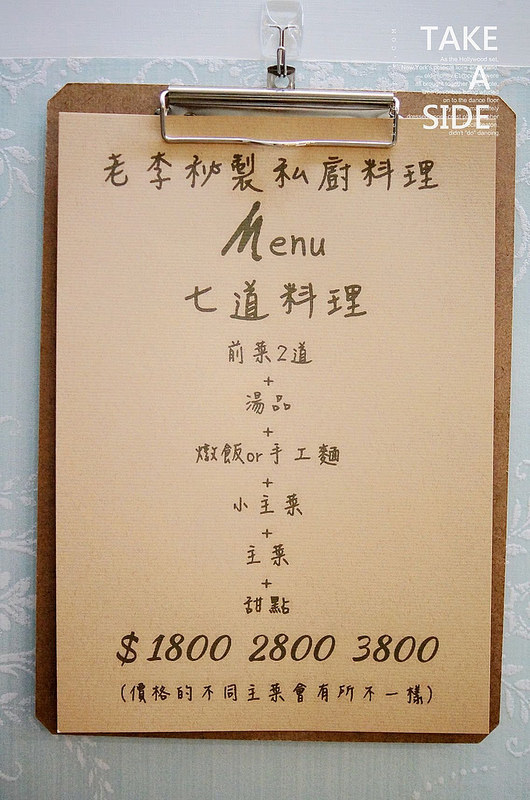 TAKE
A
SIDE
老李祕製私廚料理
Menu
七道料理
前菜2道
+
湯品
+
燉飯or手工麵
+
小主菜
+
主菜
+
甜點
$1800 2800 3800
(價格的不同主菜會有所不一樣)